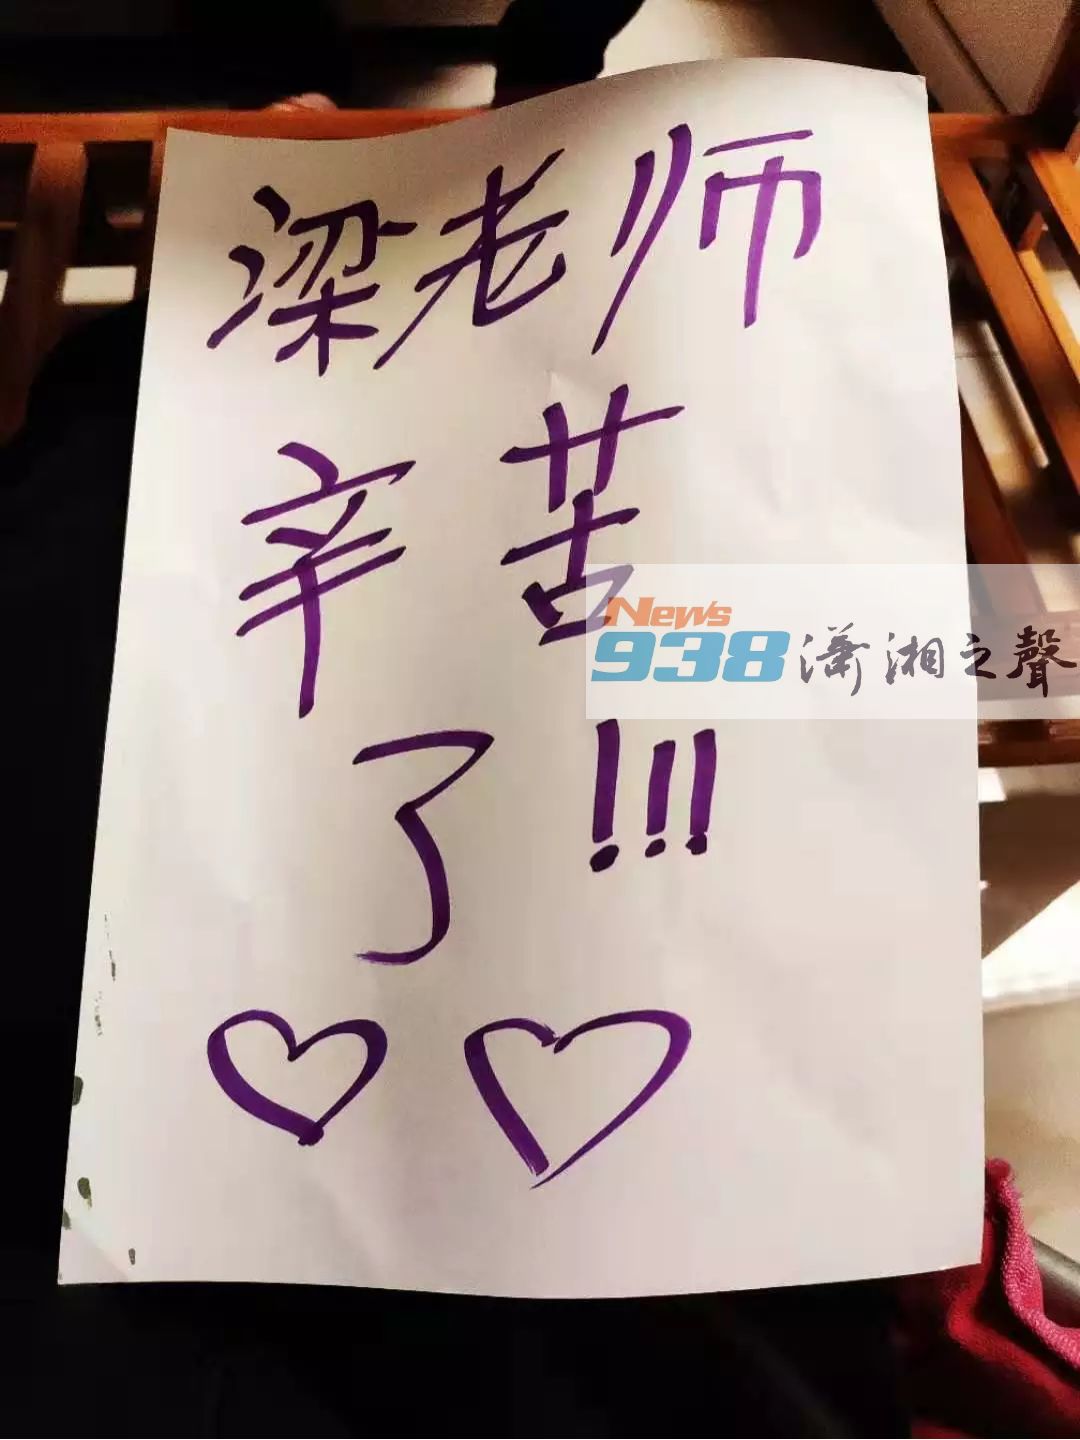 梁老师
辛苦
了!!!
News
938潇湘之聲